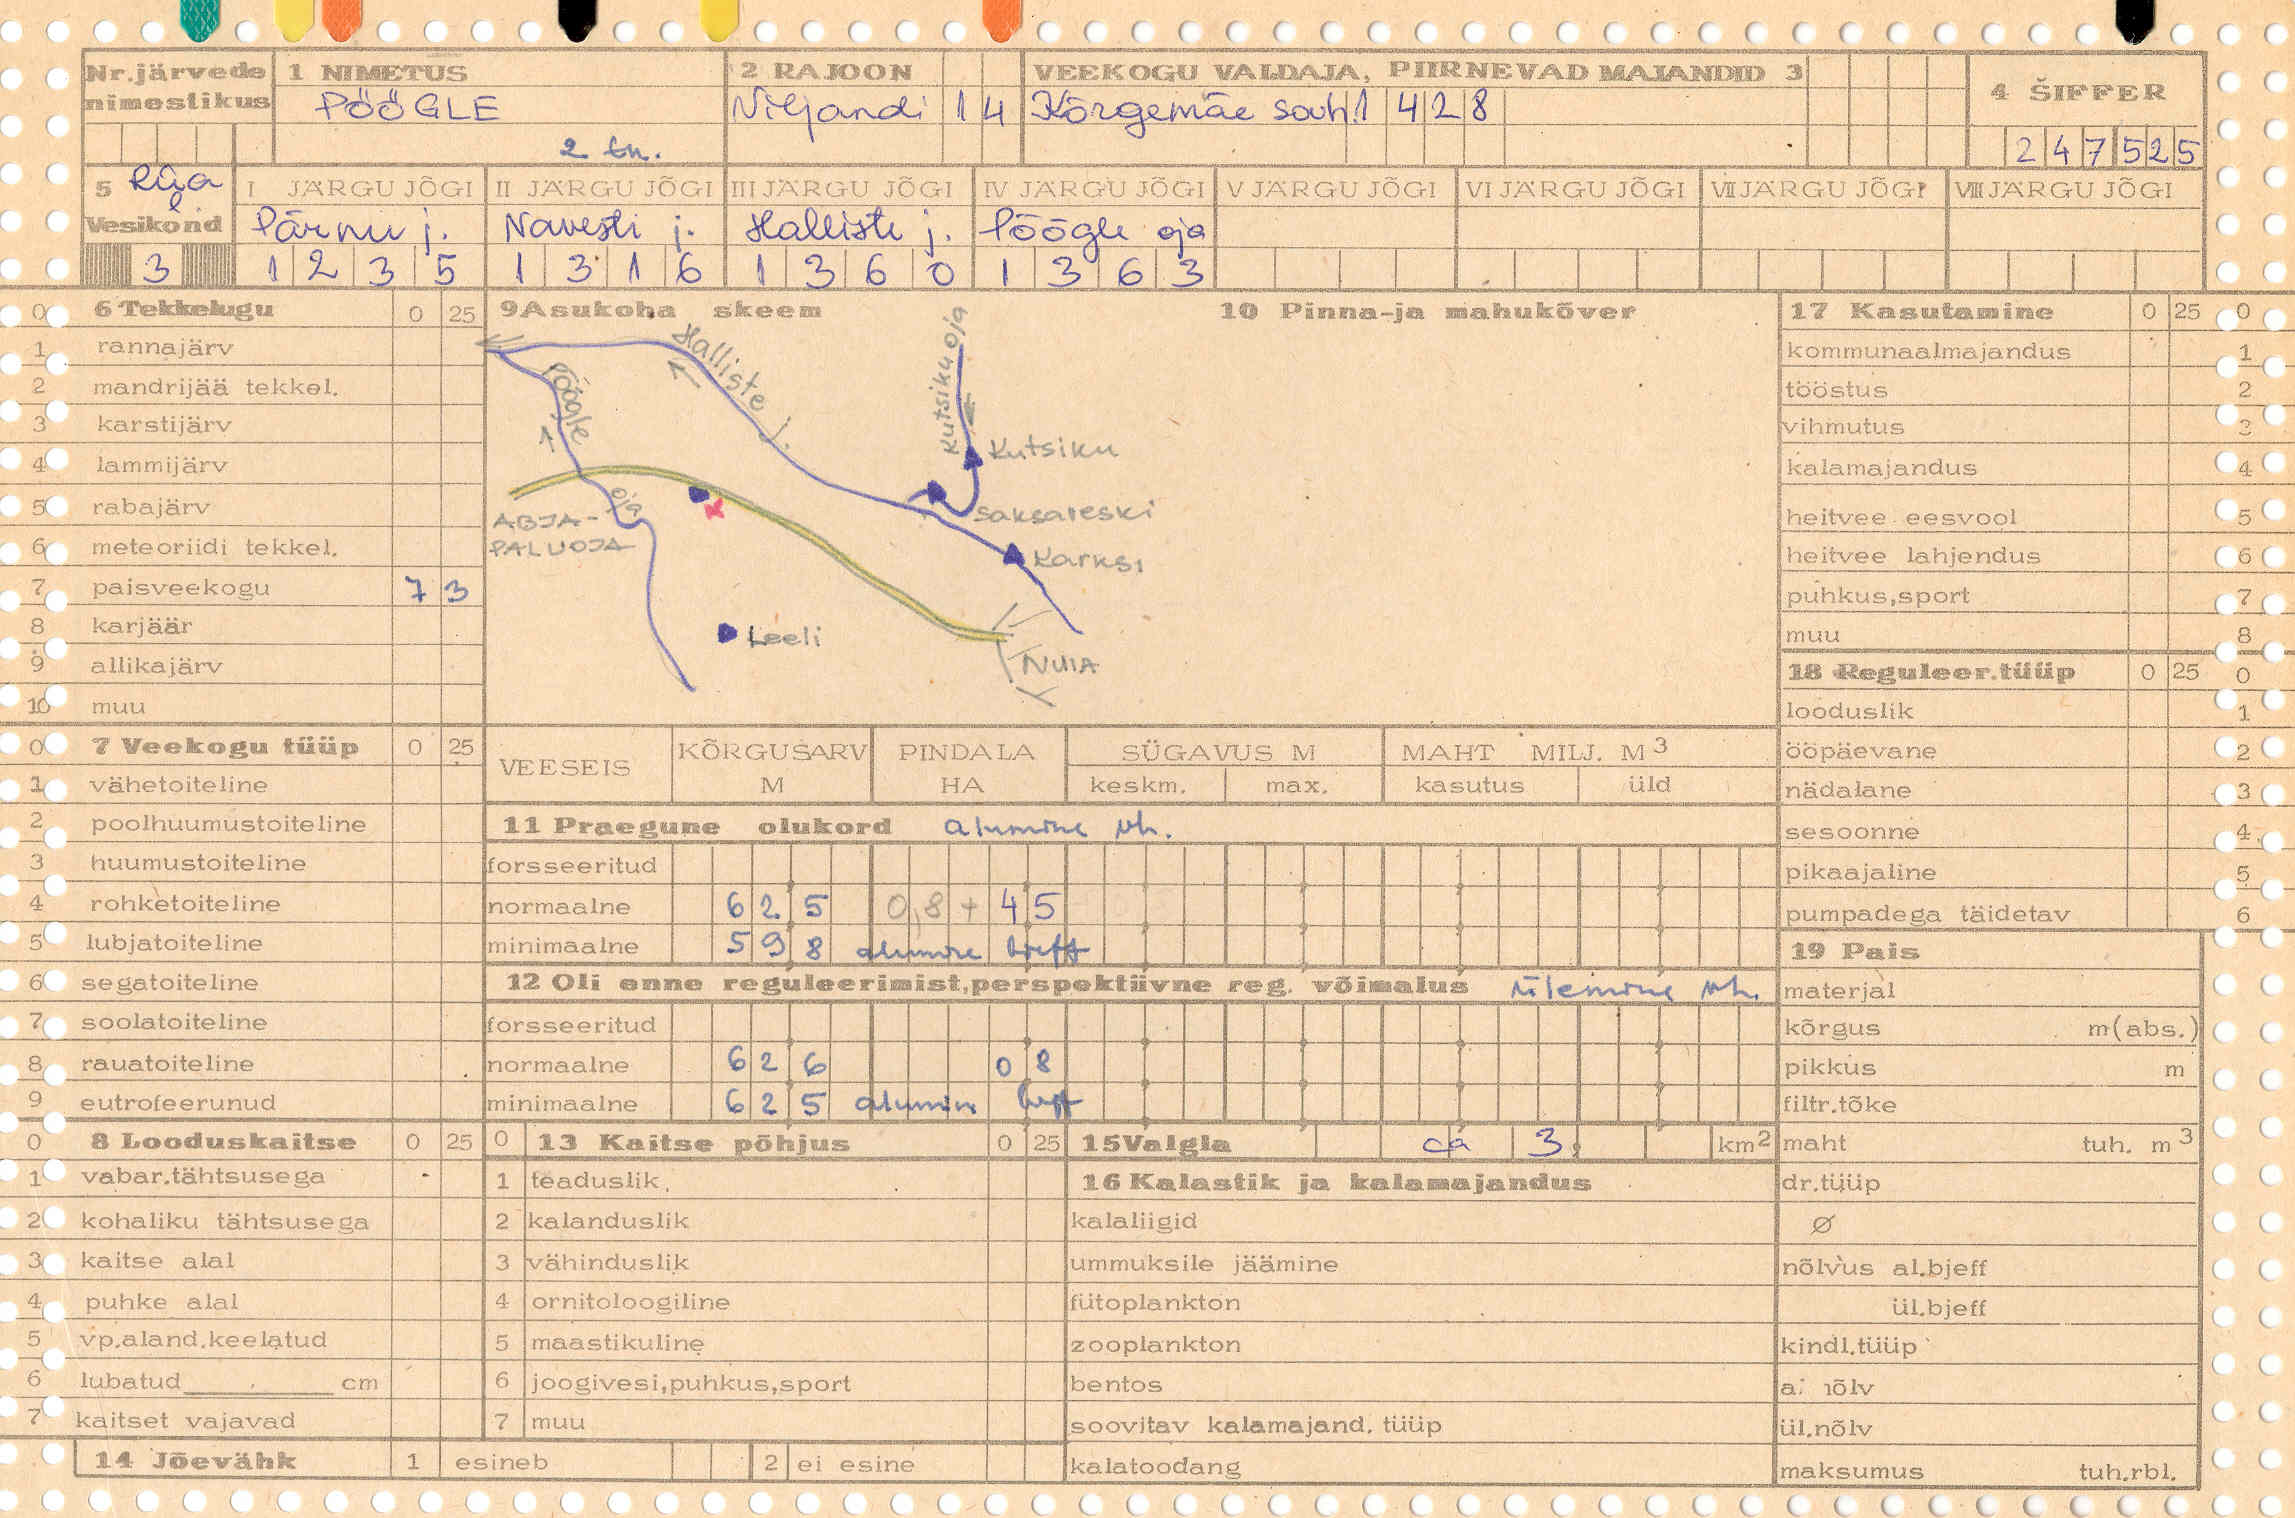 Nr.järvede nimestikus
1 NIMETUS
PÖÖGLE
2 tk.
2 RAJOON
Viljandi 14
VEEKOGU VALDAJA, PIIRNEVAD MAJANDID 3
Kõrgemäe sovh. 1428
4 ŠIFFER
247525
5 Vesikond
3
I JÄRGU JÕGI
Pärnu j.
1235
II JÄRGU JÕGI
Navesti j.
1316
III JÄRGU JÕGI
Halliste j.
1360
IV JÄRGU JÕGI
Pöögle oja
1363
V JÄRGU JÕGI
VI JÄRGU JÕGI
VII JÄRGU JÕGI
VIII JÄRGU JÕGI
0 6 Tekkelugu 0 25
1 rannajärv
2 mandrijää tekkel.
3 karstijärv
4 lammijärv
5 rabajärv
6 meteoriidi tekkel.
7 paisveekogu 7 3
8 karjäär
9 allikajärv
10 muu
0 7 Veekogu tüüp 0 25
1 vähetoiteline
2 poolhuumustoiteline
3 huumustoiteline
4 rohketoiteline
5 lubjatoiteline
6 segatoiteline
7 soolatoiteline
8 rauatoiteline
9 eutrofeerunud
0 8 Looduskaitse 0 25
1 vabar.tähtsusega
2 kohaliku tähtsusega
3 kaitse alal
4 puhke alal
5 vp.aland.keelatud
6 lubatud cm
7 kaitset vajavad
14 Jõevähk 1 esineb 2 ei esine
9 Asukoha skeem
Halliste j.
Pöögle oja
Kutsiku oja
Kutsiku
Saksareski
Karksi
ABJA-
PALUOJA
Leeli
NUIA
10 Pinna-ja mahukõver
VEESEIS
KÕRGUSARV M
PINDALA HA
SÜGAVUS M
keskm. max.
MAHT MILJ. M3
kasutus üld
11 Praegune olukord alumine vh.
forsseeritud
normaalne 625 0,8+ 45
minimaalne 598 alumine bjeff
12 Oli enne reguleerimist,perspektiivne reg. võimalus ülemine vh.
forsseeritud
normaalne 626 08
minimaalne 625 alumine bjeff
0 13 Kaitse põhjus 0 25
1 teaduslik
2 kalanduslik
3 vähinduslik
4 ornitoloogiline
5 maastikuline
6 joogivesi,puhkus,sport
7 muu
15 Valgla ca 3, km2
16 Kalastik ja kalamajandus
kalaliigid
ummuksile jäämine
fütoplankton
zooplankton
bentos
soovitav kalamajand. tüüp
kalatoodang
17 Kasutamine 0 25 0
kommunaalmajandus 1
tööstus 2
vihmutus 3
kalamajandus 4
heitvee eesvool 5
heitvee lahjendus 6
puhkus,sport 7
muu 8
18 Reguleer.tüüp 0 25 0
looduslik 1
ööpäevane 2
nädalane 3
sesoonne 4
pikaajaline 5
pumpadega täidetav 6
19 Pais
materjal
kõrgus m(abs.)
pikkus m
filtr.tõke
maht tuh. m3
dr.tüüp
Ø
nõlvus al.bjeff
ül.bjeff
kindl.tüüp
ül.nõlv
maksumus tuh.rbl.